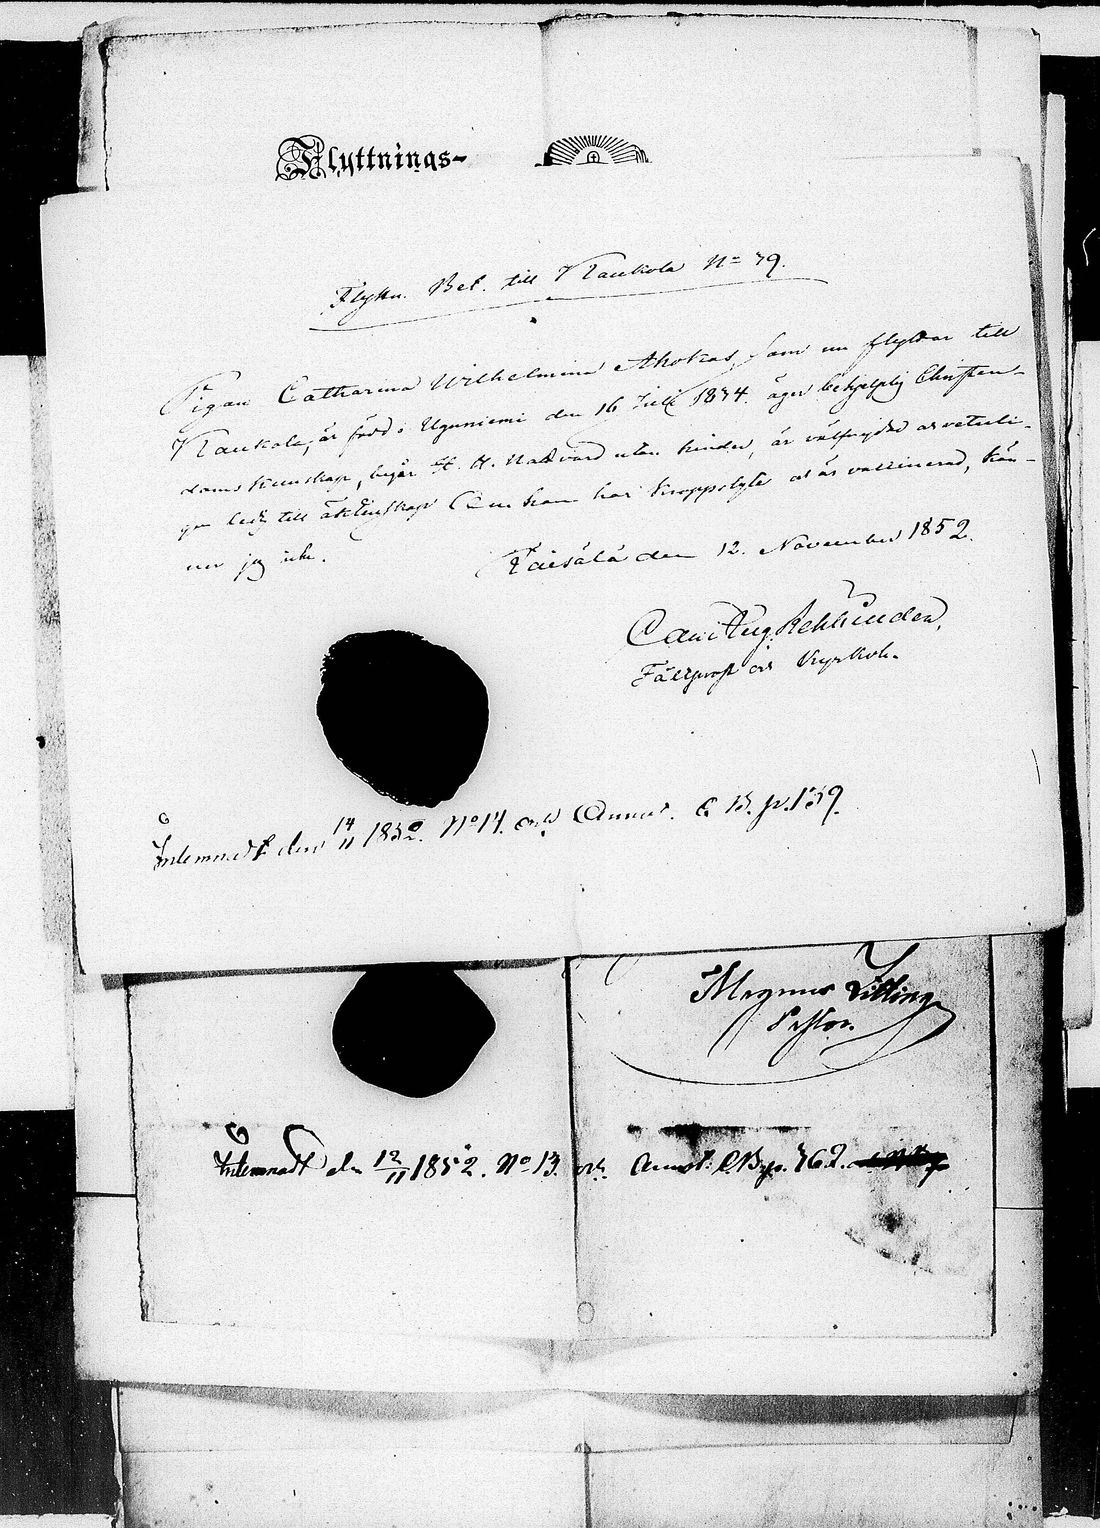 Flyttnings-
Flyttn. Bet. till Kaukola No 79.
Pigan Catharina Wilhelmina Ahokas, som nu flyttar till
Kaukola, är född i Uguniemi den 16 Juli 1834. äger behjelplig Christen-
doms kunskap, begår H. H. Nattvard utan hinder, är välfrejdad och veterli-
gen ledig till äktenskap. Om hon har kroppslyte och är vaccinerad, kän-
ner jag icke.
den 12. November 1852.
Carl Aug. Rehbinder,
Fältprost och Kyrkoh.
Inlemnadt den 14/11 1852. No 14. och Annot. C. B. p. 139.
Magnus
Pastor.
Inlemnadt den 12/11 1852. No 13. och Annot: C. B. p. 762.